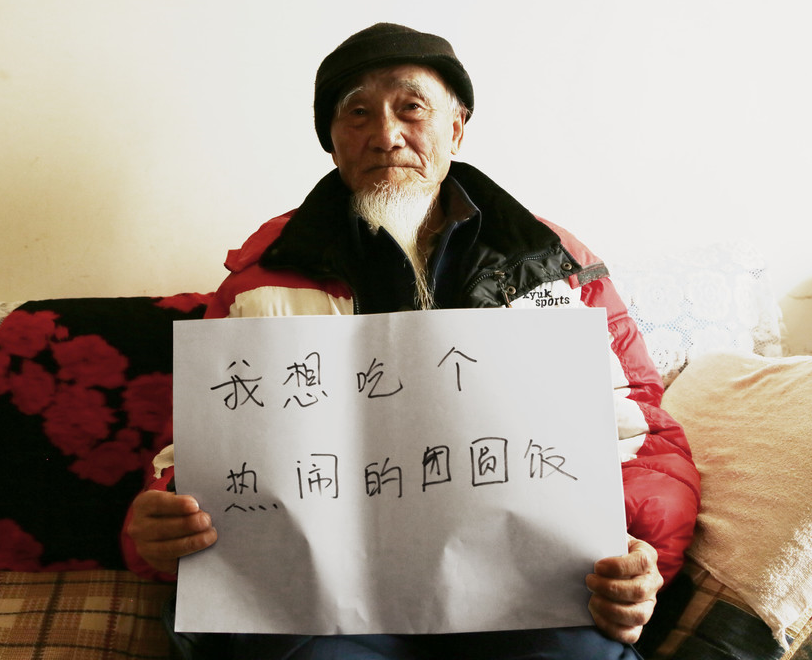 我想吃个
热闹的团圆饭
sports